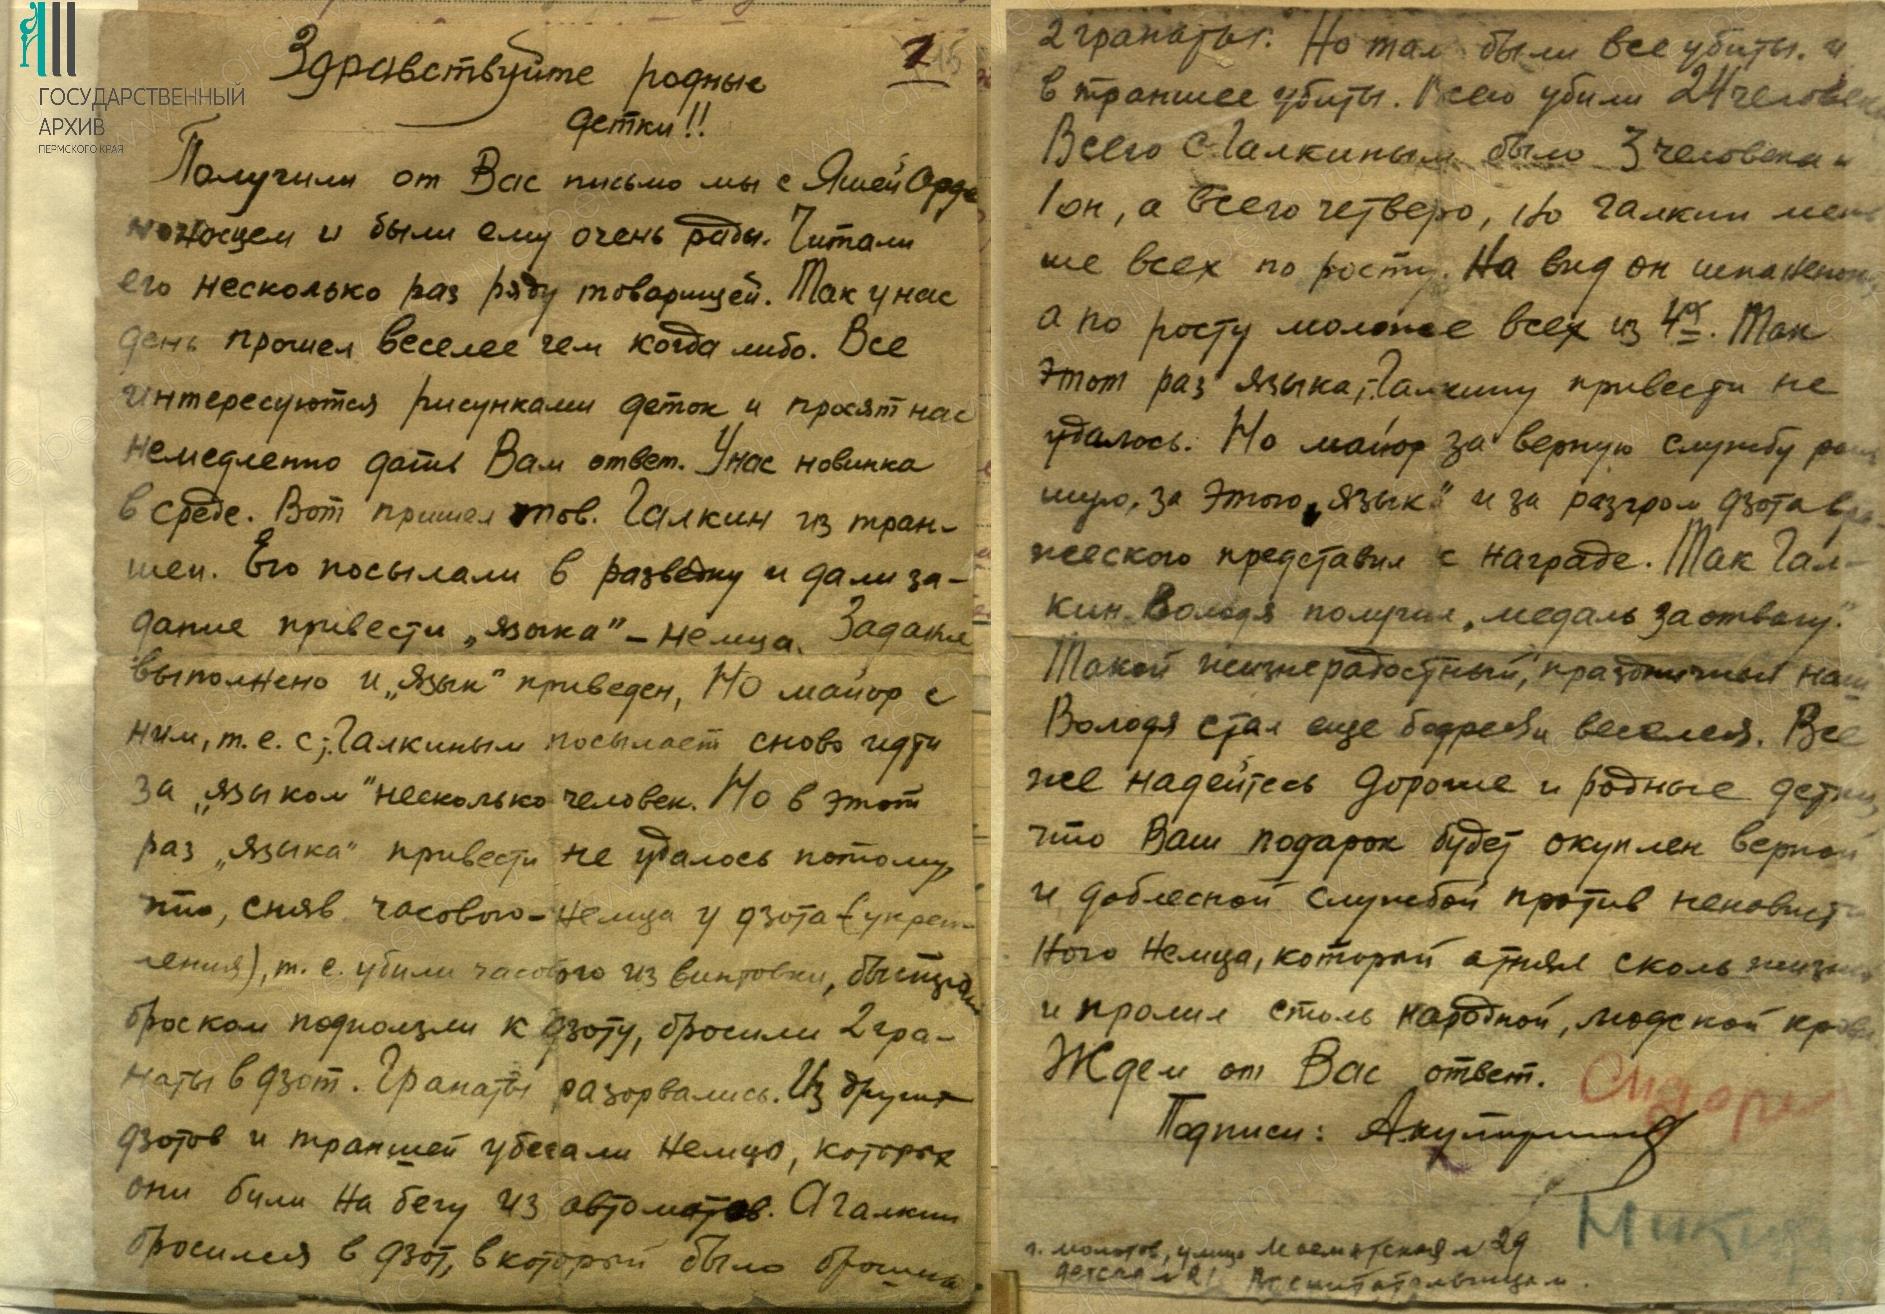 ГОСУДАРСТВЕННЫЙ
АРХИВ
ПЕРМСКОГО КРАЯ
1
Здравствуйте родные
детки!!
Получили от Вас письмо мы с Яшей Орде
ноносцем и были ему очень рады. Читали
его несколько раз ряду товарищей. Так у нас
день прошел веселее чем когда либо. Все
интересуются рисунками деток и просят нас
немедленно дать Вам ответ. У нас новинка
в среде. Вот пришел тов. Галкин из тран-
шеи. Его посылали в разведку и дали за-
дание привести „языка" – немца. Задание
выполнено и „язык" приведен, Но майор с
ним, т.е. с т. Галкиным посылает сново идти
за „языком" несколько человек. Но в этот
раз „языка" привести не удалось потому,
что, сняв часового-немца у дзота (укреп-
ления), т.е. убили часового из винтовки, быстрым
броском подползли к дзоту, бросили 2 гра-
наты в дзот. Гранаты разорвались. Из других
дзотов и траншей убегали немцы, которых
они били на бегу из автоматов. А Галкин
бросился в дзот, в который было брошено
2 гранаты. Но там были все убиты. и
в траншее убиты. Всего убили 24 человека
Всего с Галкиным было 3 человека и
1 он, а всего четверо, но Галкин мень
ше всех по росту. На вид он
а по росту моложе всех из 4х. Так
этот раз языка, т. Галкину привести не
удалось. Но майор за верную службу
за этого „язык" и за разгром дзота вра-
жеского представил к награде. Так Гал-
кин Володя получил „медаль за отвагу".
Такой жизнерадостный, праздничный наш
Володя стал еще бодрей и веселея. Все
же надейтесь дорогие и родные детки,
что Ваш подарок будет окуплен верной
и доблесной службой против ненавист
ного немца, который отнял сколь жизней
и пролил столь народной, людской крови
Ждем от Вас ответ.
Подписи:
г. Молотов, улица № 29
детсад № 21 Воспитательницам.